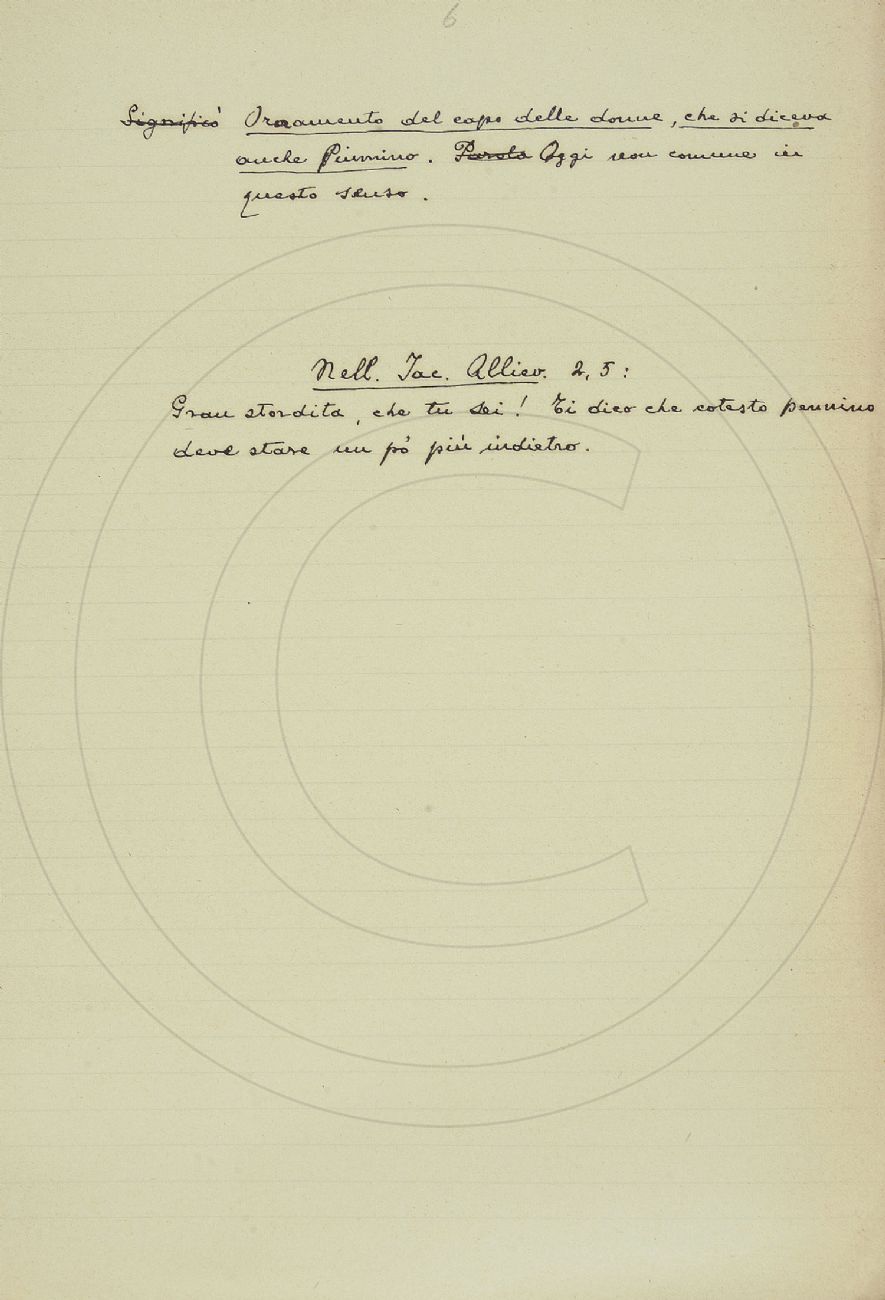 6
Significò Ornamento del capo delle donne, che si diceva
anche Piumino. Parola Oggi non comune in
questo senso.
Nell. Iac. Alliev. 2, 5:
Gran stordita, che tu sei! Ti dico che cotesto pennino
deve stare un pò più indietro.